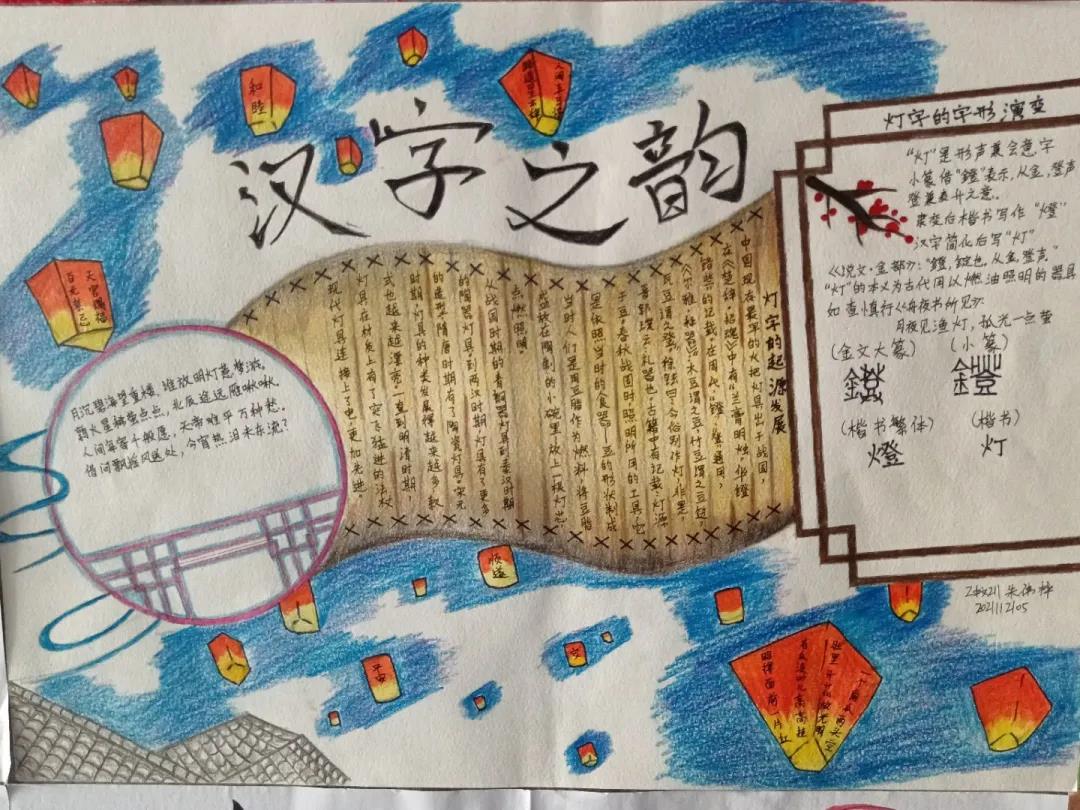 汉字之韵
和睦
天官赐福
百无禁忌
月沉碧海望重楼，谁放明灯意梦游。
霜火星鳞萤点点，北辰途远雁啾啾。
人间每寄千般愿，天帝难平万种愁。
借问飘摇风送处，今宵热泪未东流？
灯字的起源发展
中国现存最早的火把灯具出于战国，
在《楚辞·招魂》中有"兰膏明烛，华镫
错些"的记载。在周代"镫、登通用，
《尔雅·释器》：木豆谓之豆，竹豆谓之笾，
瓦豆谓之登。徐铉曰：今俗别作灯，非是，
晋郭璞云礼器也。古籍中有记载：灯源
于豆。春秋战国时，照明所用的工具，它
是依照当时的食器——豆的形状制成
当时人们是用豆脂作为燃料，将豆脂
盛放在陶制的小碗里，放上一根灯芯，
点燃照明。
从战国时期的青铜器灯具到秦汉时期
的陶器灯具，到两汉时期灯具有了更多
的造形，隋唐时期有了陶瓷灯具，宋元
时期，灯具的种类发展得越来越多，款
式也越来越漂亮，一直到明清时期，
灯具在材质上有了突飞猛进的活跃
现代灯具连接上了电，更加先进。
灯字的字形演变
"灯"是形声兼会意字
小篆借"鐙"表示，从金，登声
登兼表升之意。
隶变后楷书写作"燈"
汉字简化后写"灯"
《说文·金部》："鐙，锭也，从金，登声"
"灯"的本义为古代用以燃油照明的器具
如查慎行《舟夜书所见》：
月夜见渔灯，孤光一点萤
(金文大篆)
(小篆)
鐙
鐙
(楷书繁体)
(楷书)
燈
灯
顺遂
平安
安
照得面前一片红
2021.12.05